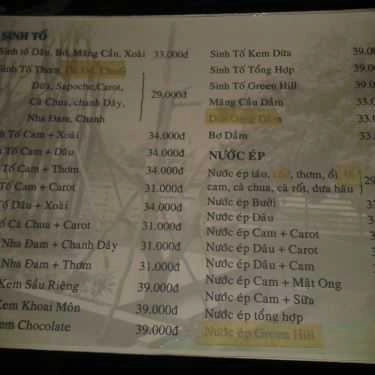 SINH TỐ
Sinh tố Dâu, Bơ, Mãng Cầu, Xoài 33.000đ
Sinh Tố Thơm,
Dưa, Sapoche, Carot,
Cà Chua, chanh Dây, 29.000đ
Nha Đam, Chanh
Tố Cam + Xoài 34.000đ
Tố Cam + Dâu 34.000đ
Tố Cam + Thơm 34.000đ
Tố Cam + Carot 31.000đ
Tố Dâu + Xoài 34.000đ
Tố Cà Chua + Carot 31.000đ
Nha Đam + Chanh Dây 31.000đ
Nha Đam + Thơm 31.000đ
Kem Sầu Riêng 39.000đ
Kem Khoai Môn 39.000đ
em Chocolate 39.000đ
Sinh Tố Kem Dừa 39.0
Sinh Tố Tổng Hợp 39.0
Sinh Tố Green Hill 39.0
Mãng Cầu Dầm 33.
Dầm 33.
Bơ Dầm 33.
NƯỚC ÉP
Nước ép táo, thơm, ổi,
cam, cà chua, cà rốt, dưa hấu 29
Nước ép Bưởi 33
Nước ép Dâu 33
Nước ép Cam + Carot
Nước ép Dâu + Carot
Nước ép Dâu + Cam
Nước ép Cam + Mật Ong
Nước ép Cam + Sữa
Nước ép tổng hợp
Nước ép Green Hill